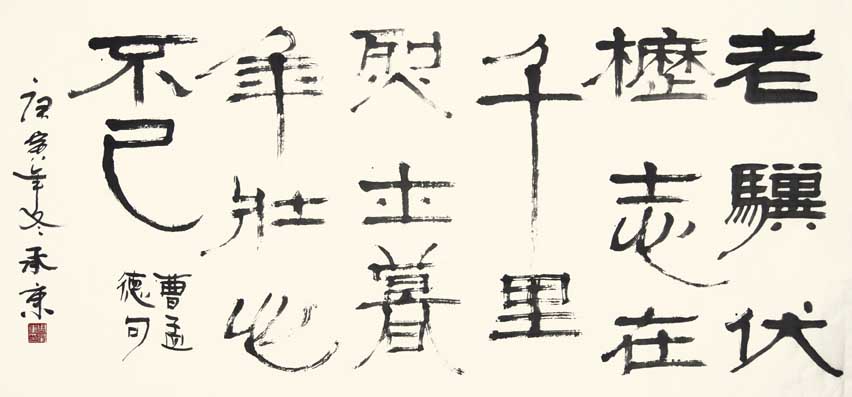 老驥伏
櫪志在
千里
烈士暮
年壯心
不已
曹孟
德句
庚寅年冬承